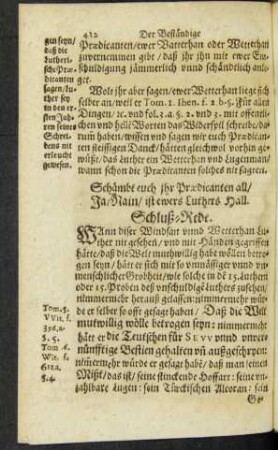 412 Der Beständige
gen seyn/
daß die
Lutherische
Prædicanten
sagen/ Luther
sey
in den ersten
Jahren
seines
Schreibens
nit
erleucht
gewesen.
Prædicanten/ ewer Vatterhan oder Wetterhan
zuvernemmen gibt/ daß jhr jhn mit ewer Entschuldigung
jämmerlich vnnd schändlich anlieget.
Wolt jhr aber sagen/ ewer Wetterhan liege sich
selber an/ weil er Tom. 1. Ihen. f. 1. b. 5. für allen
Dingen/ &c. vnd fol. 3. a. 5. 2. vnd 3. mit offenbarlichen
vnd hellē Worten das Widerspil schreibt:
haben/ wissen vnd sagen wir euch Prædicanten
steiffigen Danck/ hätten gleichwol vorhin gewüßt/
das Luther ein Wetterhan vnd Lugenmann
wann schon die Prædicanten solches nit sageten.
Schämbt euch jhr Prædicanten all/
Ja/ Nain/ ist ewers Luthers Hall.
Schluß-Rede.
WAnn diser Windfan vnnd Wetterhan Luther
nit gesehen/ vnd mit Händen gegriffen
hätte/ daß die Welt muthwillig habe wöllen betrogen
seyn/ hätt er sich nit so vnmässiger vnnd vnmenschlicher
Grobheit/ wie solche in nd 15. Luthen
oder 15. Proben deß vnschuldige Luthers zusehen/
nimmermehr herauß gelassen: nimmermehr würde
er selber so offt gesagt haben/ Daß die Welt
mutwillig wölle betrogen seyn: nimmermehr
hätt er die Teutschen für Sevv vnnd vnvernünfftige
Bestien gehalten vñ außgeschryen:
nimermehr würde er gesagt habē/ daß man seinen
Mißt/ das ist/ seine stinckende Hoffart: seine vnzahlbare
Lugen: sein Türckischen Alcoran: sein
Tom. 5.
VVit. f.
5. 5.
Tom 4.
Wit. f.
Ge-